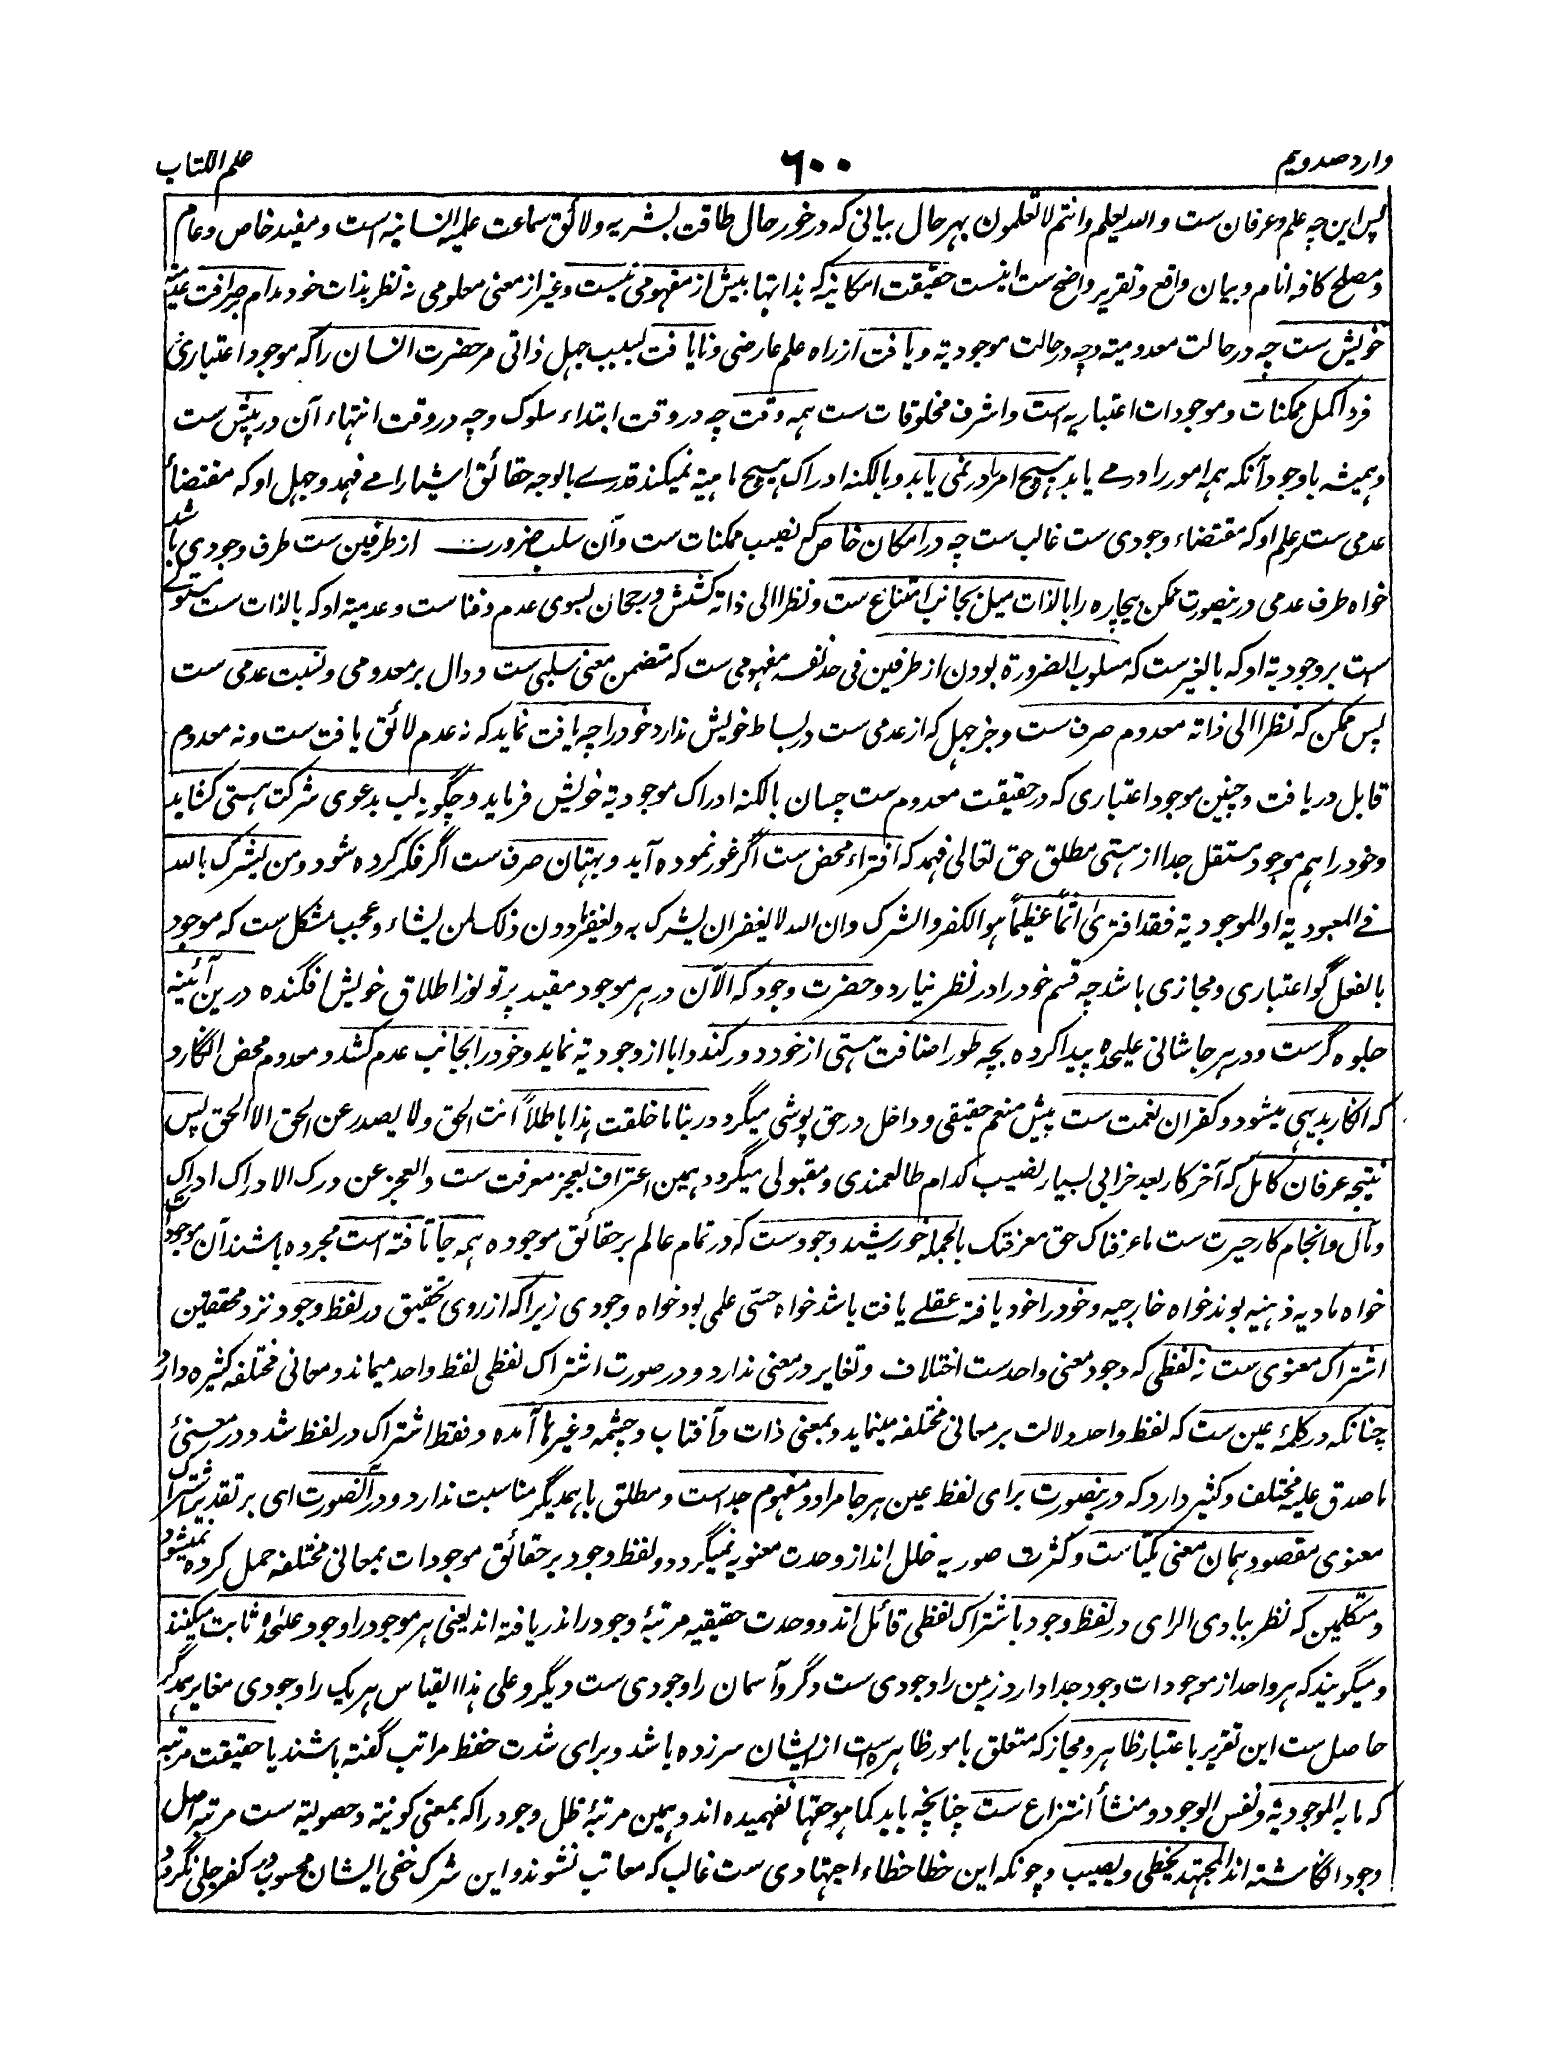 وارد صد و یم
۶۰۰
علم الکتاب
پس این چه علم و عرفان ست و الله یعلم و انتم لا تعلمون بہر حال بیانی که در خور حال طاقت بشریه و لائق سماعت علمیه انسانیه است و مفید خاص و عام
و مصلح کافه انام و بیان واقع و تقریر واضح ست اینست حقیقت امکانیه که بذاتها بیش از مفهومی نیست و غیر از معنی معلومی نه نظر بذات خود مدام صرافت عدمیة
خویش ست چه در حالت معدومیته و چه در حالت موجودیة و یافت از راه علم عارضی و نایافت بسبب جهل ذاتی مر حضرت انسان را که موجود اعتباری
فرد اکمل ممکنات و موجودات اعتباریه است و اشرف مخلوقات ست همه وقت چه در وقت ابتداء سلوک و چه در وقت انتهاء آن در پیش ست
و همیشه باوجود آنکه همه امور را درمے یابد هیچ امر را در نمی یابد و بالکنه ادراک هیچ ماهیته نمیکند قدرے بالوجه حقائق اشیا را مے فهمد و جهل او که مقتضاء
عدمی ست بر علم او که مقتضاء وجودی ست غالب ست چه در امکان خاص که نصیب ممکنات ست و آن سلب ضرورت از طرفین ست طرف وجودی باشد
خواه طرف عدمی درینصورت ممکن بیچاره را بالذات میل بجانب امتناع ست و نظرا الی ذاته کشش و رجحان بسوی عدم و فنا ست و عدمیة او که بالذات ست مستولے
است بر وجودیة او که بالغیر ست که مسلوب الضرورة بودن از طرفین فی حد نفسه مفهومی ست که متضمن معنی سلبی ست و دال بر معدومی و نسبت عدمی ست
پس ممکن که نظرا الی ذاته معدوم صرف ست و جز جهل که از عدمی ست در بساط خویش ندارد خود را چه یافت نماید که نه عدم لائق یافت ست و نه معدوم
قابل دریافت و چنین موجود اعتباری که در حقیقت معدوم ست چسان بالکنه ادراک موجودیة خویش فرماید و چگونه لب بدعوی شرکت هستی کشاید
و خود را هم موجود مستقل جدا از هستی مطلق حق تعالی فهمد که افتراء محض ست اگر غور نموده آید و بهتان صرف ست اگر فکر کرده شود و من یشرک بالله
فے المعبودیة او الموجودیة فقد افتریٰ اثماً عظیماً هو الکفر و الشرک و ان الله لا یغفر ان یشرک به و یغفر ما دون ذلک لمن یشاء و عجب مشکل ست که موجود
بالفعل گو اعتباری و مجازی باشد چه قسم خود را در نظر نیارد و حضرت وجود که الآن در هر موجود مقید پرتو نور اطلاق خویش افگنده درین آئینه
جلوه گر ست و در هر جا شانی علیحده پیدا کرده بچه طور اضافت هستی از خود دور کند و ابا از وجودیة نماید و خود را بجانب عدم کشد و معدوم محض انگارد
که انکار بدیهی میشود و کفران نعمت ست پیش منعم حقیقی و داخل در حق پوشی میگردد ربنا ما خلقت هذا باطلاً انت الحق و لا یصدر عن الحق الا الحق پس
نتیجه عرفان کامل که آخر کار بعد خرابی بسیار نصیب کدام طالعمندی و مقبولی میگردد همین اعتراف بعجز معرفت ست و العجز عن درک الادراک ادراک
و مآل و انجام کار حیرت ست ما عرفناک حق معرفتک بالجمله خورشید وجود ست که در تمام عالم بر حقائق موجوده همه جا تافته است مجرده باشند آن موجودات
خواه مادیه ذهنیه بوند خواه خارجیه و خود را خود یافته عقلے یافت باشد خواه حسّی علمی بود خواه وجودی زیرا که از روی تحقیق در لفظ وجود نزد محققین
اشتراک معنوی ست نه لفظی که وجود معنی واحد ست اختلاف و تغایر در معنی ندارد و در صورت اشتراک لفظی لفظ واحد میماند و معانی مختلفه کثیره دارد
چنانکه در کلمهٔ عین ست که لفظ واحد دلالت بر معانی مختلفه مینماید و بمعنی ذات و آفتاب و چشمه و غیرها آمده و فقط اشتراک در لفظ شد و در معنئ
ما صدق علیه مختلف و کثیر دارد که درینصورت برای لفظ عین هر جا مراد و مفهوم جداست و مطلق باهمدیگر مناسبت ندارد و در آنصورت ای بر تقدیر اشتراک
معنوی مقصود همان معنی یکتاست و کثرت صوریه خلل انداز وحدت معنویه نمیگردد و لفظ وجود بر حقائق موجودات بمعانی مختلفه حمل کرده نمیشود
و متکلمین که نظر ببادی الرای در لفظ وجود باشتراک لفظی قائل اند و وحدت حقیقیه مرتبهٔ وجود را نه دریافته اند یعنی هر موجود را وجود علیحده ثابت میکنند
و میگویند که هر واحد از موجودات وجود جدا دارد زمین را وجودی ست دگر و آسمان را وجودی ست دیگر و علی هذا القیاس هر یک را وجودی مغایر همدگر
حاصل ست این تقریر باعتبار ظاهر و مجاز که متعلق بامور ظاهره است از ایشان سرزده باشد و برای شدت حفظ مراتب گفته باشند یا حقیقت مرتبه
که ما به الموجودیة و نفس الوجود و منشأ انتزاع ست چنانچه باید کما هو حقها نفهمیده اند و همین مرتبهٔ ظل وجود را که بمعنی کونیته و حصولیته ست مرتبه اصل
وجود انگاشته اند المجتهد یخطی و یصیب و چونکه این خطا خطاء اجتهادی ست غالب که معاتب نشوند و این شرک خفی ایشان محسوب در کفر جلی نگردد